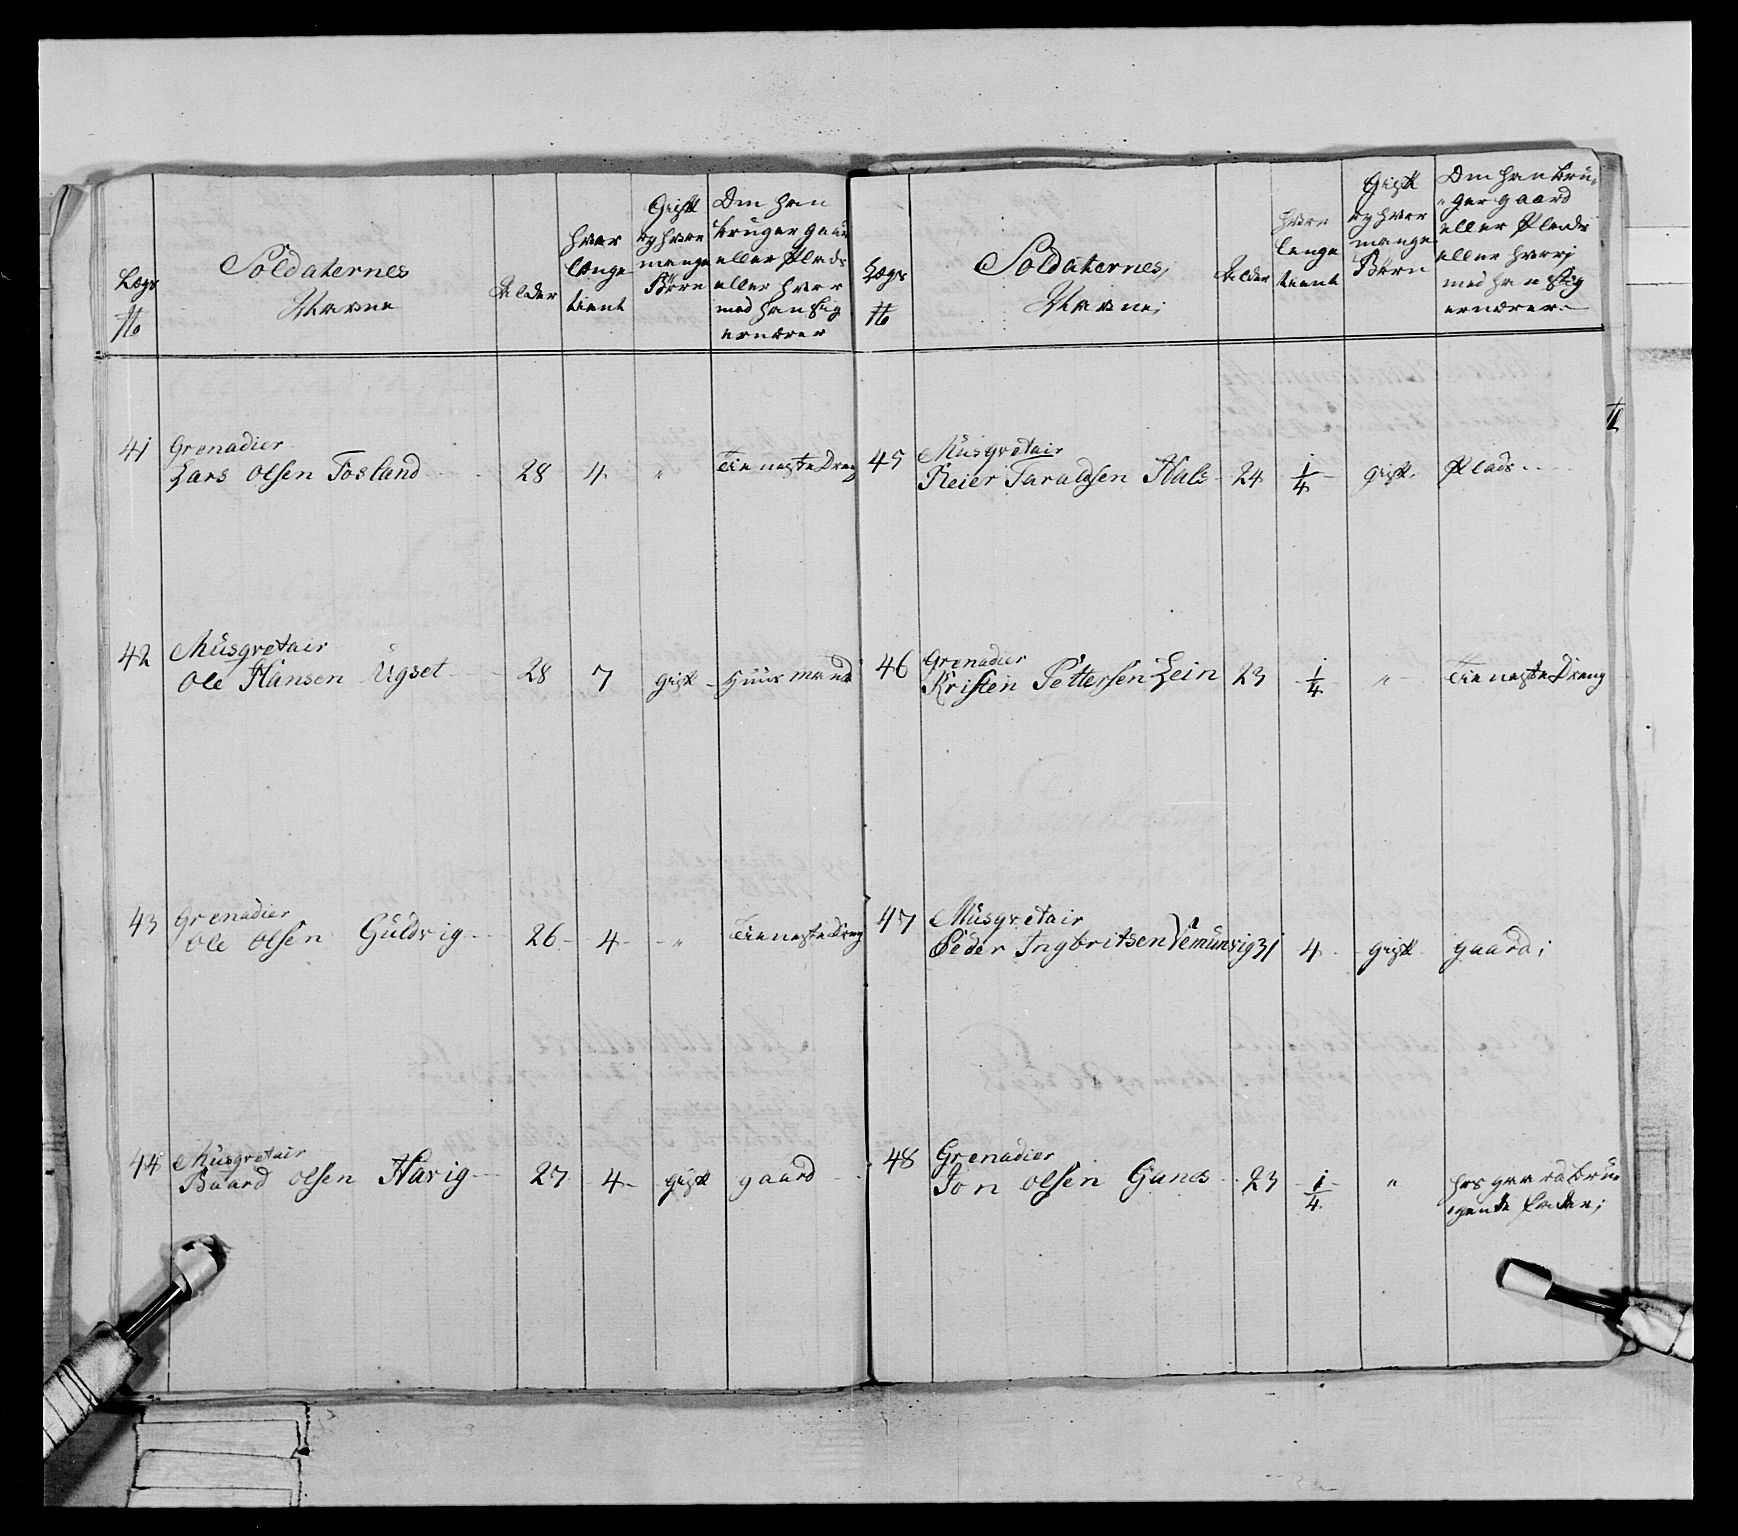 Lægs No
Soldaternes Navne
Alder
hvor længe tient
Gift og hvor mange Børn
Om han bruger gaard eller Plads eller hvor med han sig ernærer
41 Grenadier
Lars Olsen Fosland 28 4 " Tieneste Dreng
42 Musqvetair
Ole Hansen Ugset 28 7 gift Huusmand
43 Grenadier
Ole Olsen Guldvig 26 4 " Tieneste Dreng
44 Musqvetair
Baard Olsen Havig 27 4 gift gaard
Lægs No
Soldaternes Navne;
Alder
hvor længe tient
Gift og hvor mange Børn
Om han bruger gaard eller Plads eller hvorj med han sig ernærer
45 Musqvetair
Reier Taraldsen Hals 24 1/4 gift Plads
46 Grenadier
Kristen Pettersen Lein 23 1/4 " Tieneste Dreng
47 Musqvetair
Peder Ingbritsen Vemunvig 31 4 gift gaard;
48 Grenadier
Jon Olsen Ganes 23 1/4 " hos gaardbru-
gende Fader;